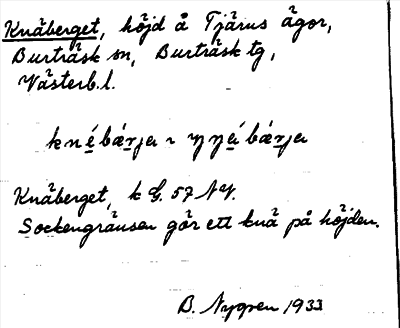 Knäberget, höjd å Tjärns ägor,
Burträsk sn, Burträsk tg,
Västerb. l.
knébærja
Knäberget, k G. 57 NV.
Sockengränsen gör ett knä på höjden.
B. Nygren 1933